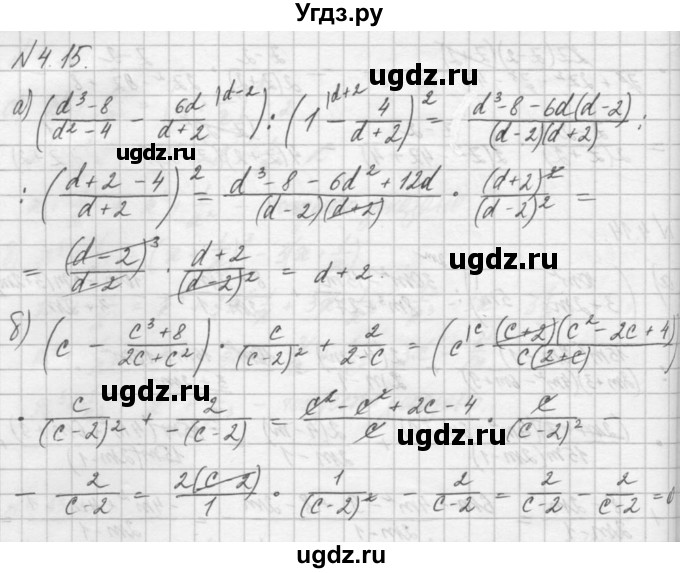 Угдз.ру
№ 4.15.
а) ((d³-8)/(d²-4) - 6d/(d+2) |d-2) : (1 |d+2 - 4/(d+2))² = (d³-8-6d(d-2))/((d-2)(d+2)) :
ugdz.ru ugdz.ru
: ((d+2-4)/(d+2))² = (d³-8-6d²+12d)/((d-2)(d+2)) · (d+2)²/(d-2)² =
ugdz.ru
= (d-2)³/(d-2) · (d+2)/(d-2)² = d+2
ugdz.ru ugdz.ru
б) (c - (c³+8)/(2c+c²)) · c/(c-2)² + 2/(2-c) = (c |c - (c+2)(c²-2c+4)/(c(2+c))) ·
ugdz.ru
· c/(c-2)² + 2/-(c-2) = (c²-c²+2c-4)/c · c/(c-2)² -
ugdz.ru ugdz.ru
- 2/(c-2) = 2(c-2)/1 · 1/(c-2)² - 2/(c-2) = 2/(c-2) - 2/(c-2) = 0
ugdz.ru